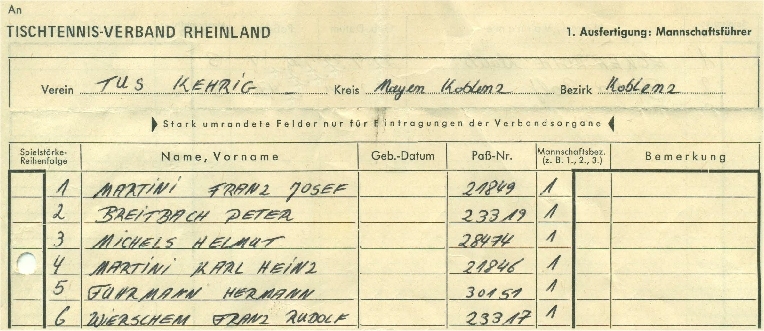 An
TISCHTENNIS-VERBAND RHEINLAND 1. Ausfertigung: Mannschaftsführer
Verein TUS KEHRIG Kreis Mayen Koblenz Bezirk Koblenz
Stark umrandete Felder nur für Eintragungen der Verbandsorgane
Spielstärke-Reihenfolge Name, Vorname Geb.-Datum Paß-Nr. Mannschaftsbez. (z. B. 1., 2., 3.) Bemerkung
1 MARTINI FRANZ JOSEF 21849 1
2 BREITBACH PETER 23319 1
3 MICHELS HELMUT 28474 1
4 MARTINI KARL HEINZ 21846 1
5 FUHRMANN HERMANN 30151 1
6 WIERSCHEM FRANZ RUDOLF 23317 1